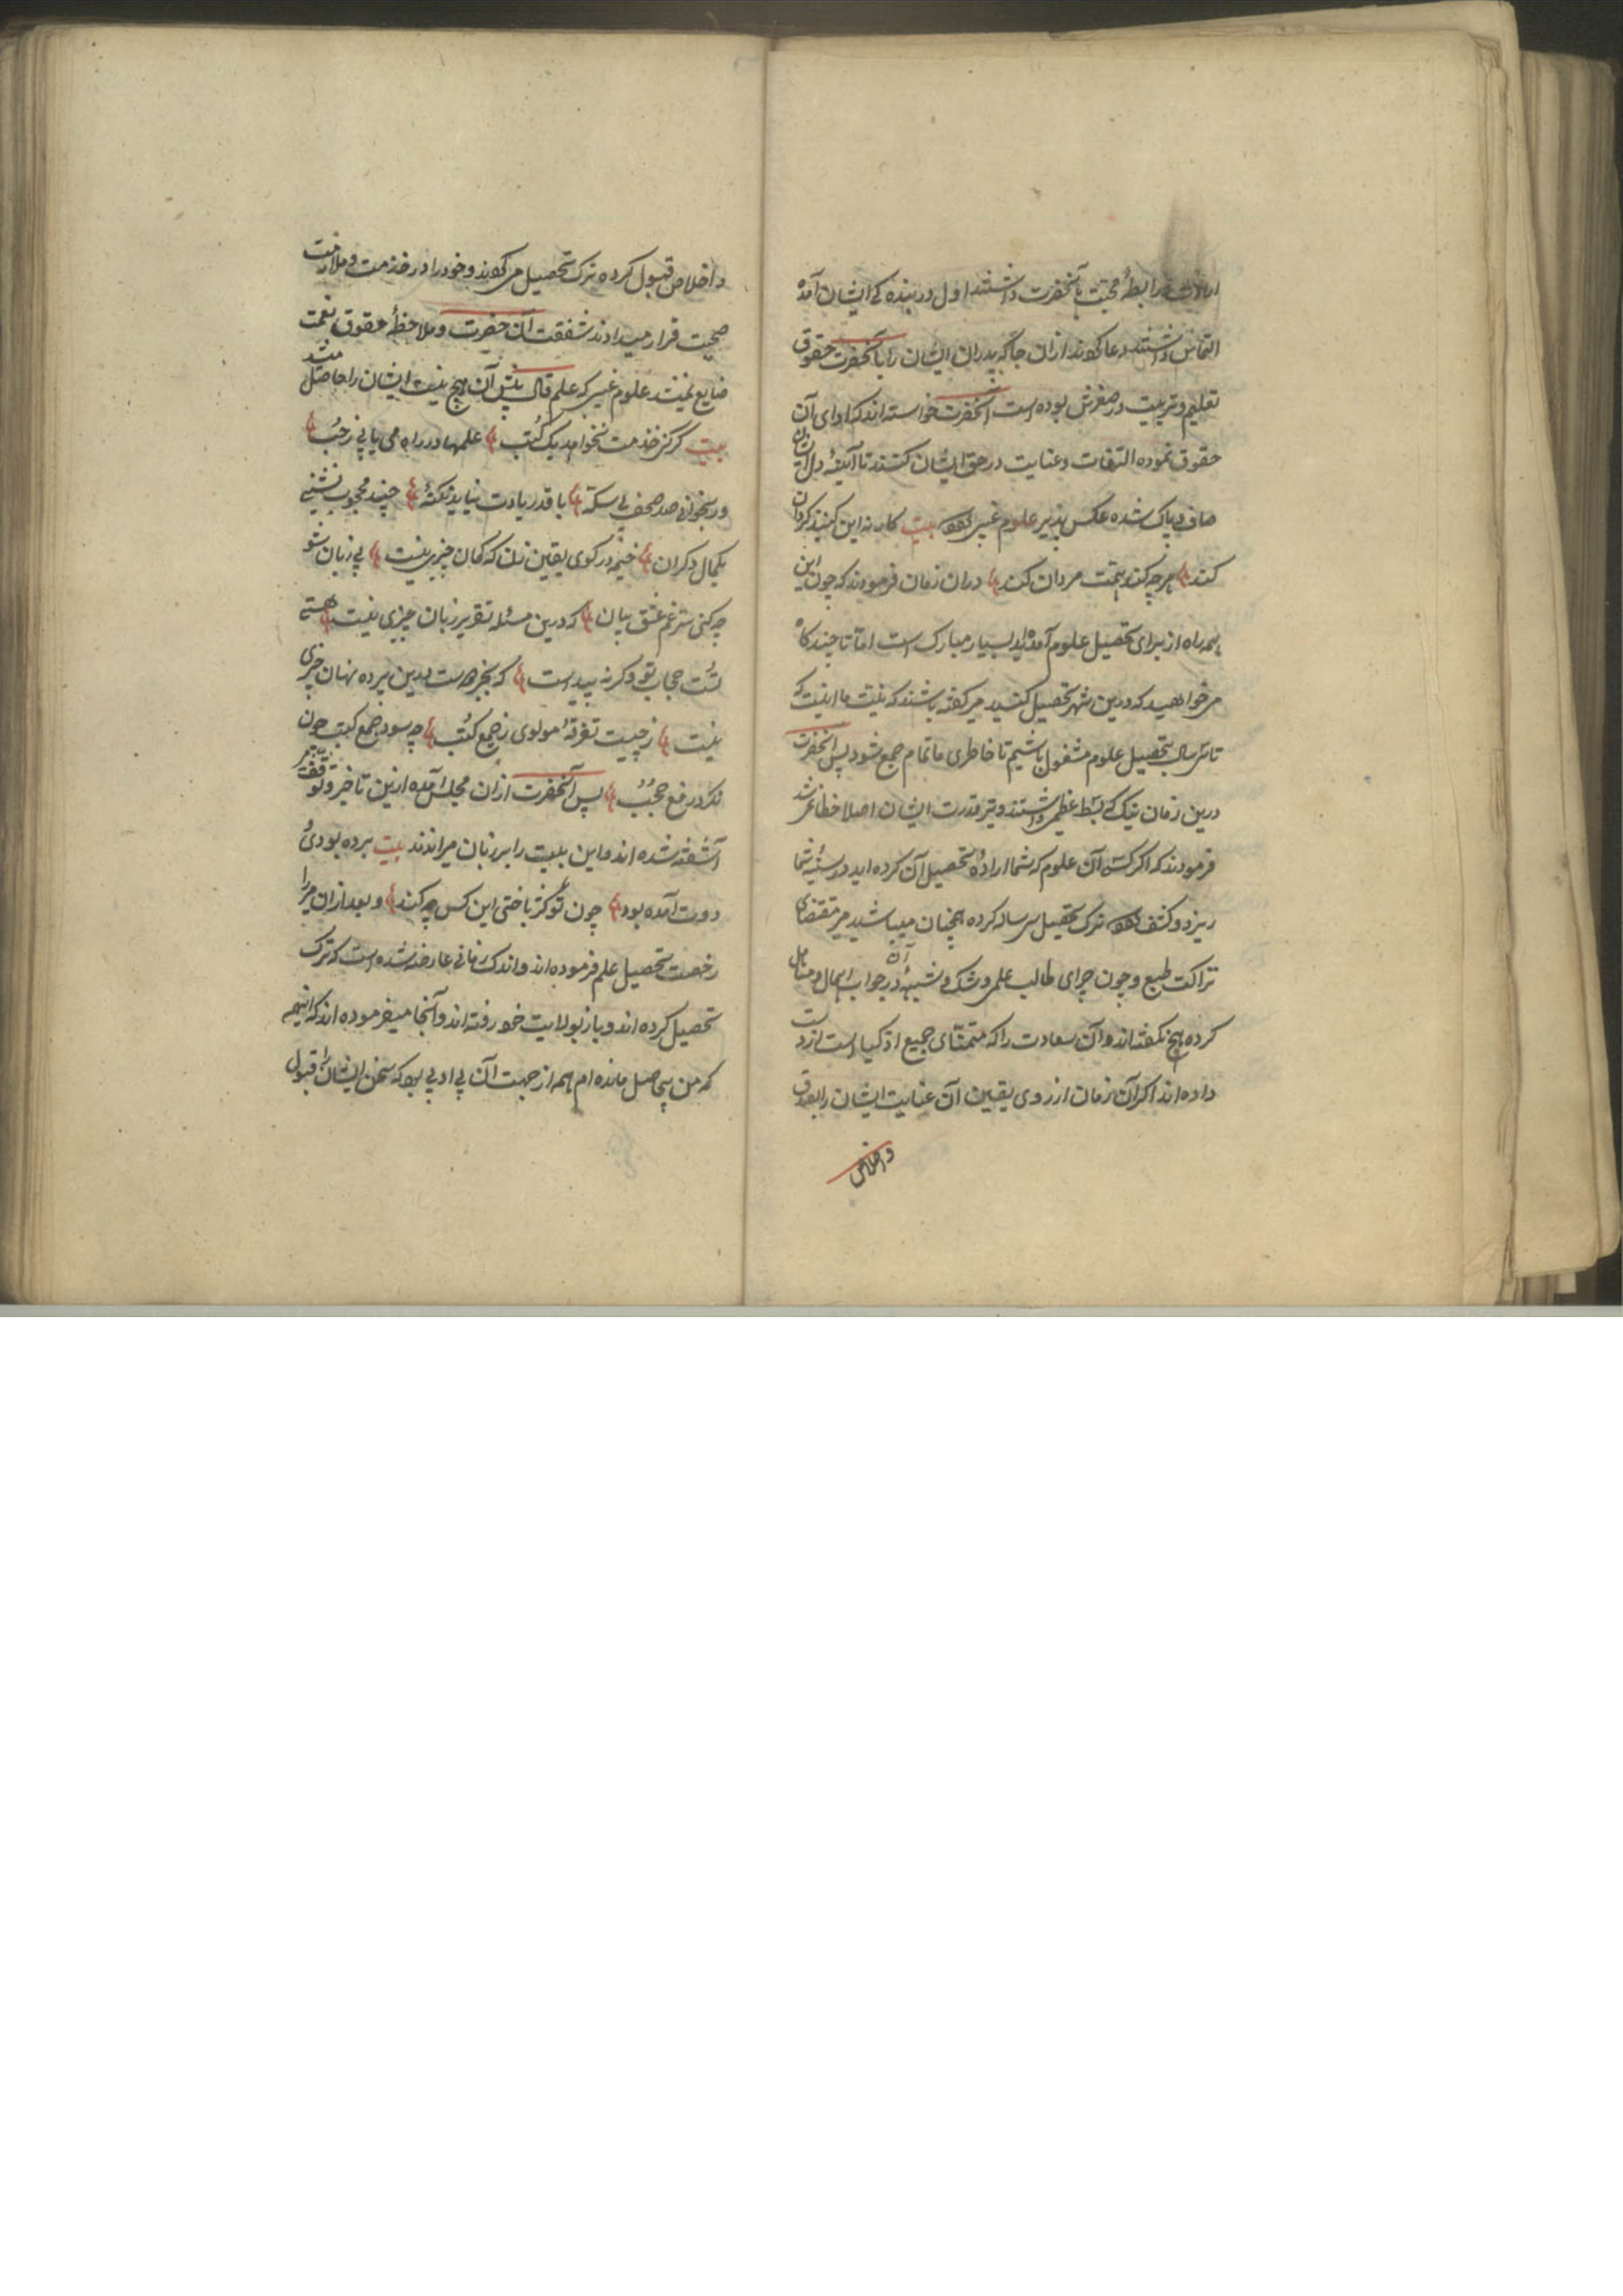 رابطهٔ محبت بآنحضرت داشتند اول در بنده کی ایشان آمده
التماس داشتند دعا کوند ازان جا که پدران ایشان را بآنحضرت حقوق
تعلیم و تربیت در صغرش بوده است آنحضرت خواسته اند که ادای آن
حقوق نموده التفات و عنایت در حق ایشان کنند تا آینهٔ دل ایشان
صاف و پاک شده عکس پذیر علوم غیبی شود بیت کار نه این کنبد کردان
کند هر چه کند همت مردان کند دران زمان فرمودند که چون این
همه راه از برای تحصیل علوم آمده اید بسیار مبارک است اما تا چند کاه
می خواهید که درین شهر تحصیل کنید می کفته باشند که نیت ما اینست که
تا سه سال بتحصیل علوم مشغول باشیم تا خاطری ما تمام جمع شود پس آنحضرت
درین زمان نیک کی بسط عظیم داشتند و تیر قدرت ایشان اصلا خطا نمی شد
فرمودند که اکر کسی آن علوم که شما ارادهٔ تحصیل آن کرده اید در سینهٔ شما
ریزد و کشف شود ترک تحصیل سه ساله کرده همچنان میباشید می مقتضای
نزاکت طبع و چون چرای طالب علمی و شک و شبههٔ آن در جواب اهمال و تساهل
کرده هیچ نکفته اند و آن سعادت را که متمنای جمیع اذکیا است از دست
داده اند اکر آن زمان از روی یقین آن عنایت ایشان را بصدق
و اخلاص
و اخلاص قبول کرده ترک تحصیل می کوند و خود را در خدمت و ملازمت
صحبت قرار میدادند شفقت آن حضرت و ملاحظهٔ حقوق نعمت
ضایع نمیشد علوم غیبی که علم قال پیش آن هیچ نیست ایشان را حاصل میشد
بیت کر کنز خدمت نخواهد یک کتب علمها در راه می یابی ز حب
ور بخوانی صد صحف بی سکته با قدر یادت نیاید نکتهٔ چند محجوب نشینی
بکمال دکران خیمه در کوی یقین زن که کمان چیزی نیست بی زبان شو
چه کنی سر غم عشق بیان که درین مسئله تقریر زبان چیزی نیست هستی
تست حجاب تو و کر نه پیداست که بجز دوست درین پرده نهان چیزی
نیست ز چیست تفرقهٔ مولوی ز جمع کتب چه سود جمع کتب چون
نکرد رفع حجب پس آنحضرت ازان مجلس آمده ازین تاخیر و توقف
آشفته شده اند و این بیت را بر زبان میراندند بیت برده بودی
دوت آمده بود چون تو کژ باختی این کس چه کند و بعد ازان میرا
رخصت تحصیل علم فرموده اند و اندک زمانی عارضه شده است که ترک
تحصیل کرده اند و باز بولایت خود رفته اند و آنجا میفرموده اند که اینهمه
که من بیحاصل مانده ام همه از جهت آن بی ادبی بود که سخن ایشان را قبول